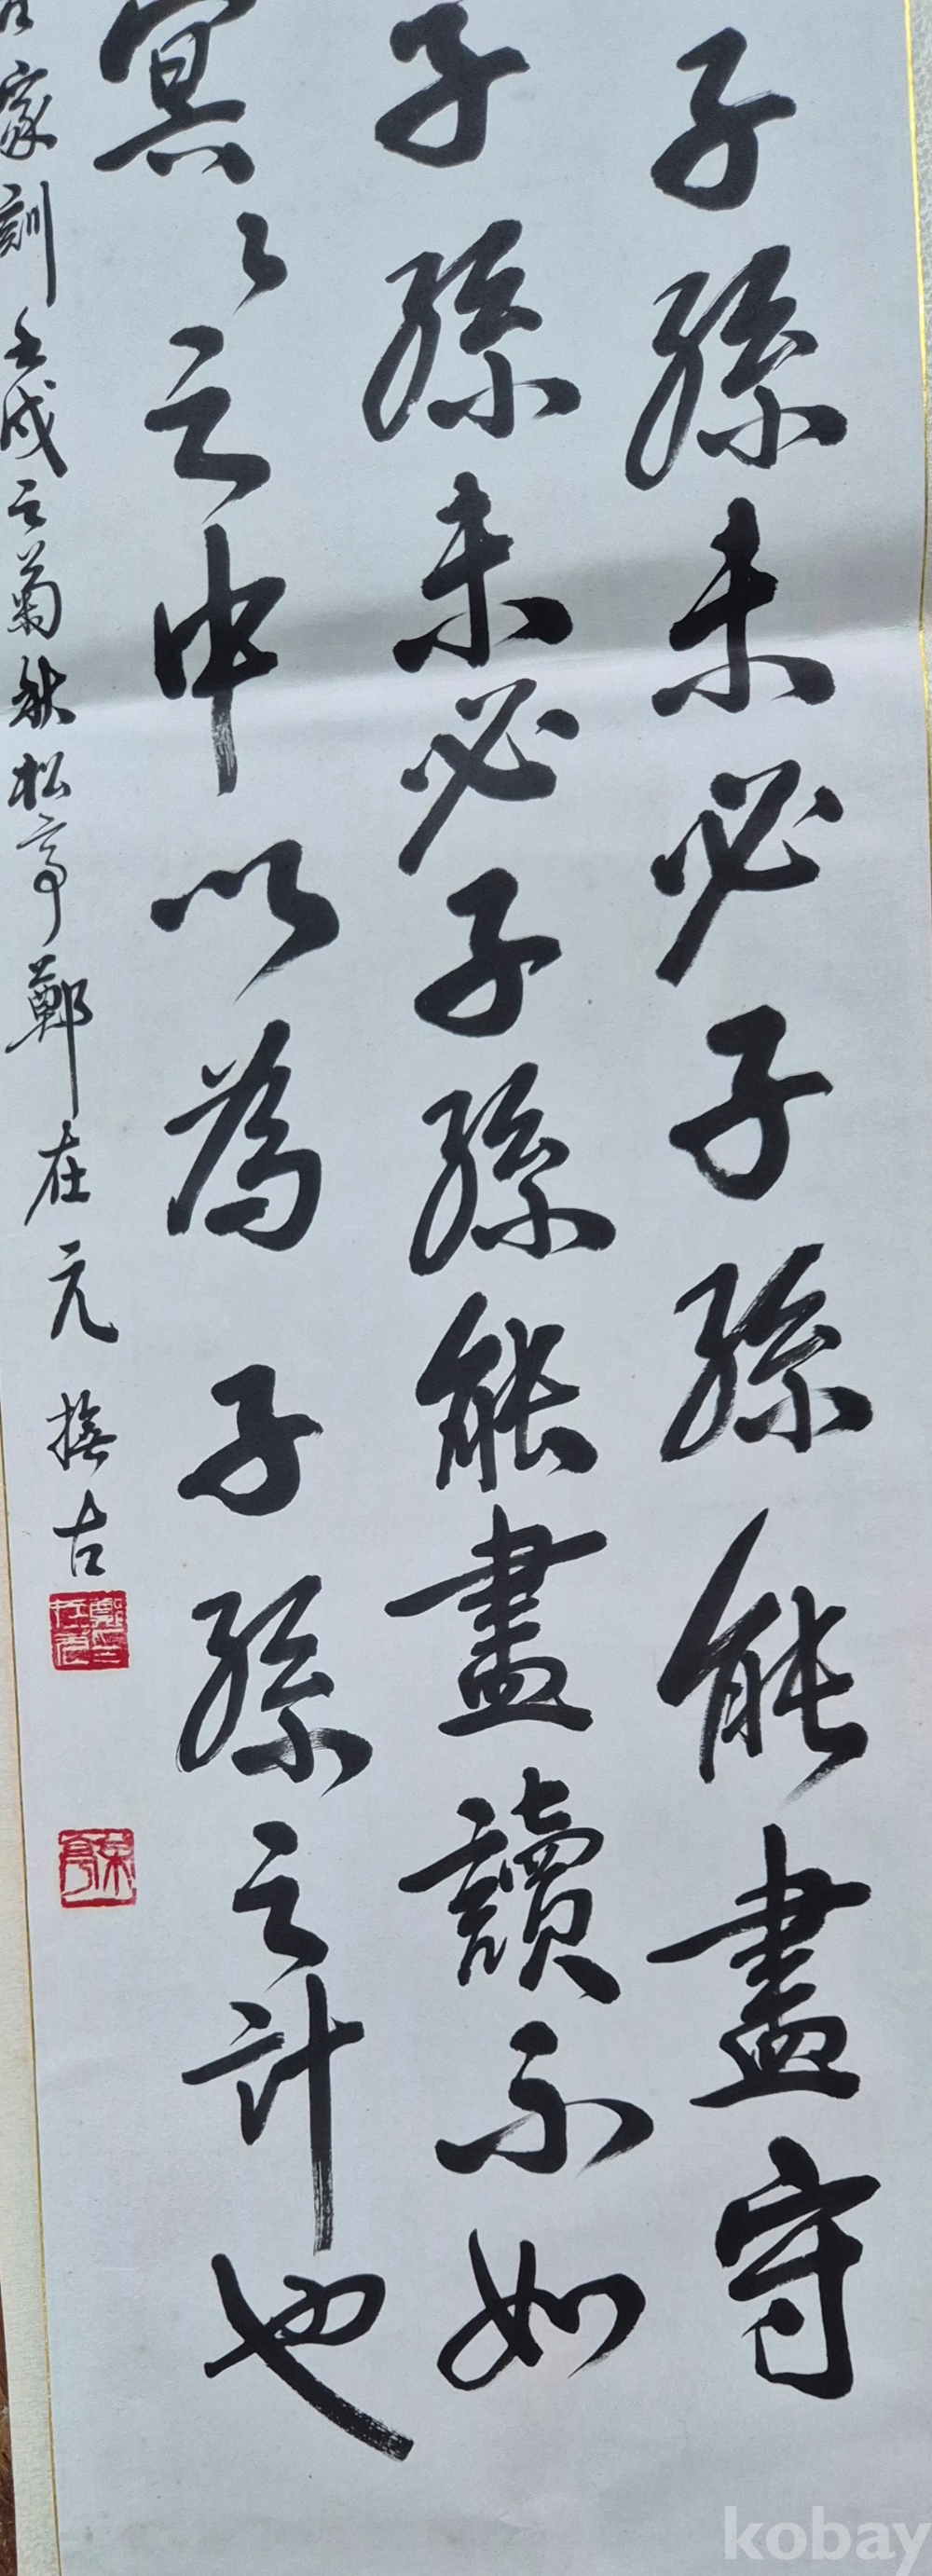 子孫未必子孫能盡守
子孫未必子孫能盡讀不如
冥〻之中以為子孫之計也
家訓壬戌之菊秋松亭鄭在元 撫古
kobay